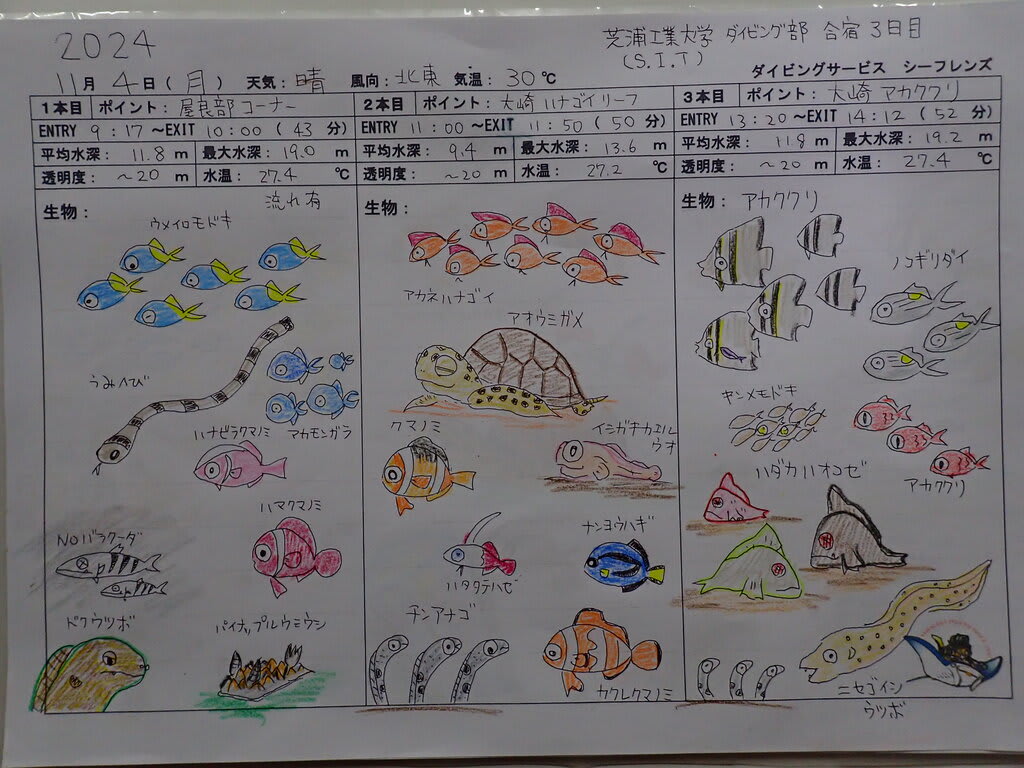 2024
芝浦工業大学 ダイビング部 合宿3日目
(S.I.T)
11月 4日(月) 天気:晴 風向:北東 気温:30℃
ダイビングサービス シーフレンズ
1本目 ポイント:屋良部コーナー
ENTRY 9:17~EXIT 10:00(43分)
平均水深: 11.8 m 最大水深: 19.0 m
透明度: ~20 m 水温: 27.4 ℃
流れ有
生物:
ウメイロモドキ
うみへび
ハナビラクマノミ
アカモンガラ
ハマクマノミ
NOバラクーダ
ドクウツボ
パイナップルウミウシ
2本目 ポイント:大崎 ハナゴイリーフ
ENTRY 11:00~EXIT 11:50(50分)
平均水深: 9.4 m 最大水深: 13.6 m
透明度: ~20 m 水温: 27.2 ℃
生物:
アカネハナゴイ
アオウミガメ
クマノミ
イシガキカエル
ウオ
ナンヨウハギ
ハタタテハゼ
チンアナゴ
カクレクマノミ
3本目 ポイント:大崎 アカククリ
ENTRY 13:20~EXIT 14:12(52分)
平均水深: 11.8 m 最大水深: 19.2 m
透明度: ~20 m 水温: 27.4 ℃
生物: アカククリ
ノコギリダイ
キンメモドキ
アカククリ
ハダカハオコゼ
ニセゴイシ
ウツボ